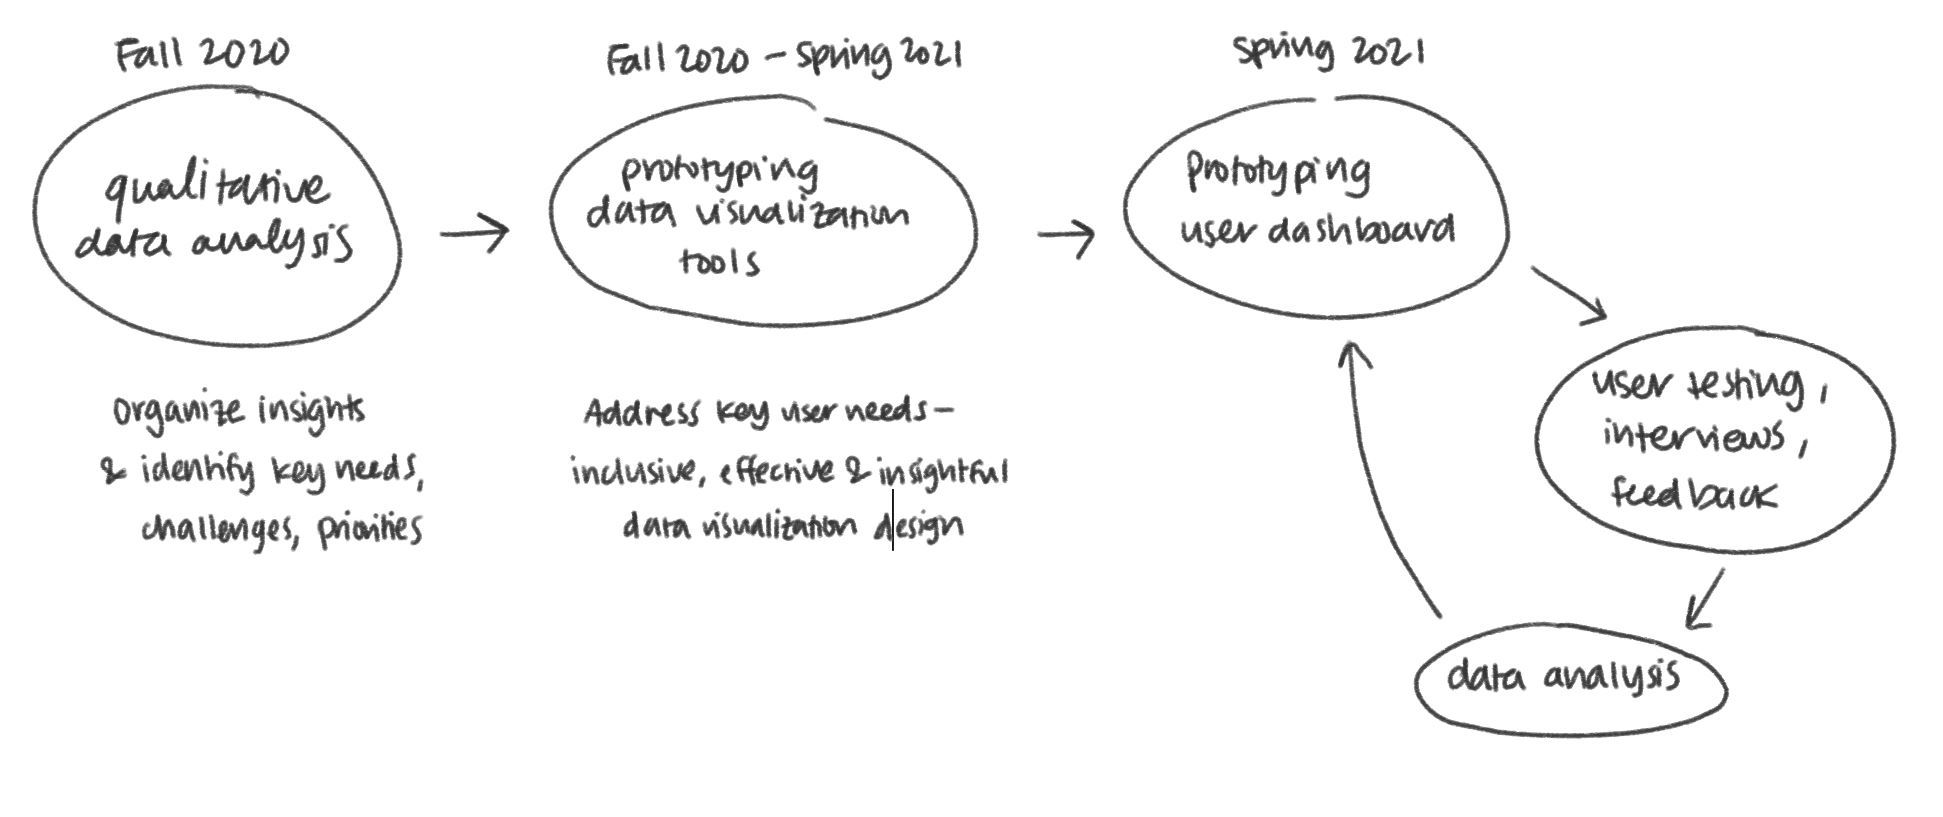 Fall 2020
qualitative
data analysis
Organize insights
& identify key needs,
challenges, priorities
Fall 2020 - Spring 2021
prototyping
data visualization
tools
Address key user needs -
inclusive, effective & insightful
data visualization design
Spring 2021
Prototyping
user dashboard
user testing,
interviews,
feedback
data analysis